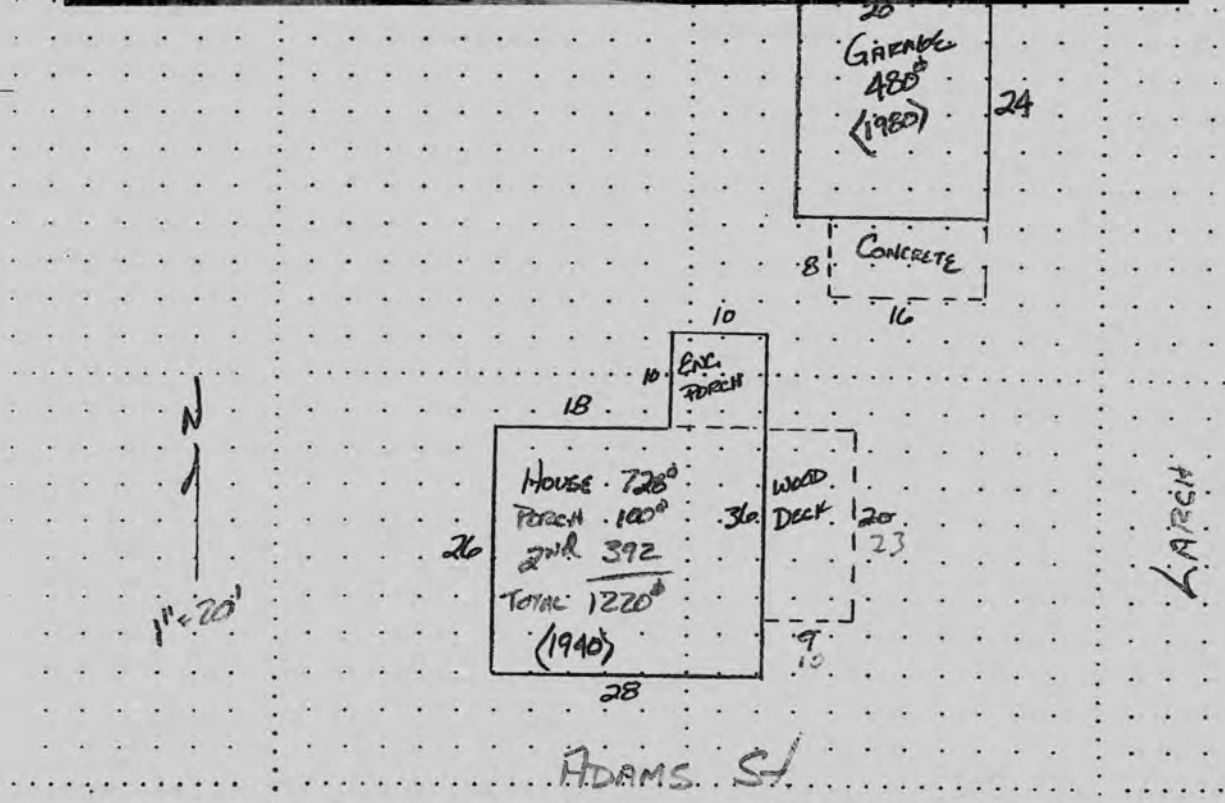 20
GARAGE
480⌀
⟨1980⟩
24
8
CONCRETE
16
10
10
ENC.
PORCH
18
N
HOUSE 728⌀
PORCH 100⌀
2ND 392
TOTAL 1220⌀
⟨1940⟩
26
36
WOOD
DECK
20
23
9
10
28
1"=20'
LARCH
ADAMS St.